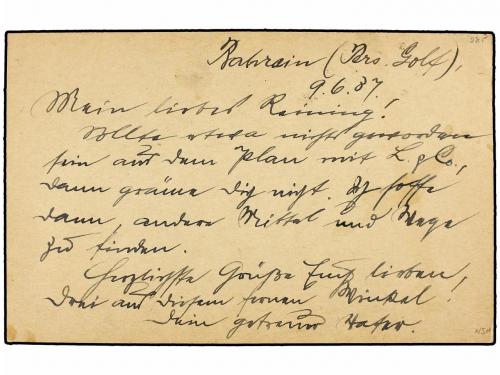 Bahrein (Pers. Golf),
9.6.37.
Mein liebes!
Sollte etwa nichts geworden
sein aus dem Plan mit L. & Co.,
dann gräme Dich nicht. Ich hoffe
dann, andere Mittel und Wege
zu finden.
Herzlichste Grüße Euch lieben
Drei aus diesem fernen Winkel!
Dein getreuer Vater.